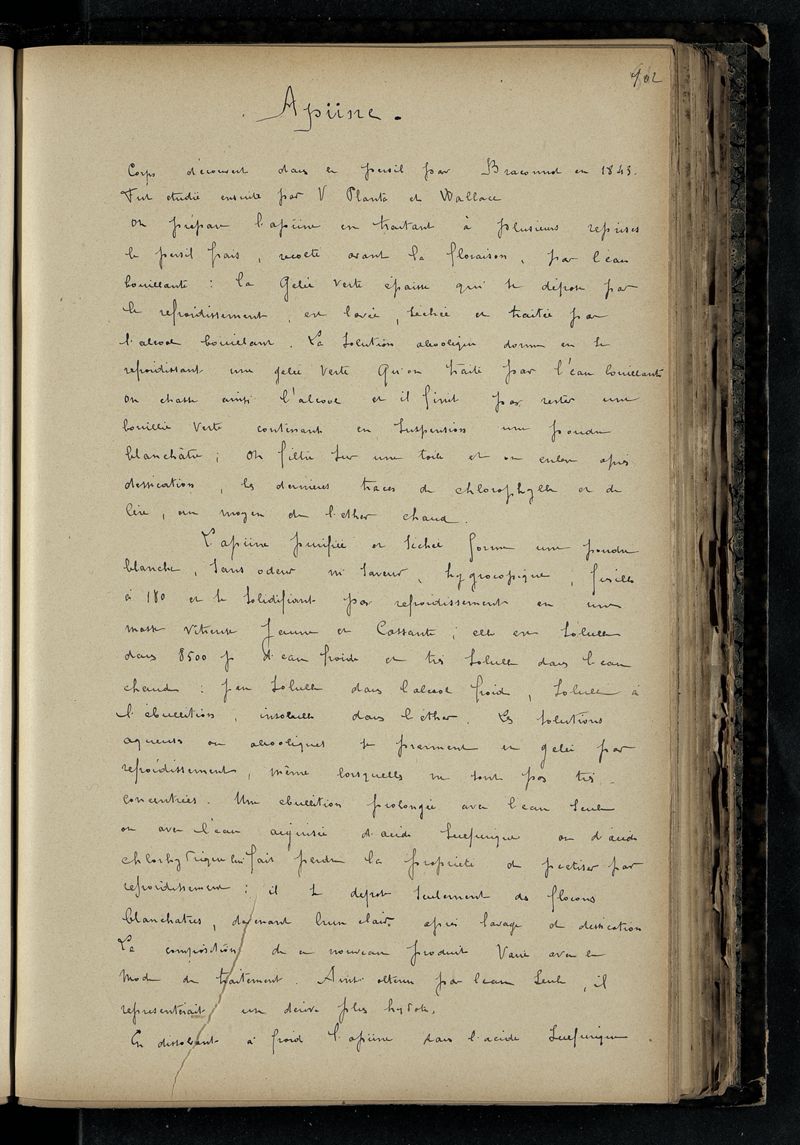 902
Apiine.
Corps découvert dans le persil par Braconnot en 1843.
Fut etudié ensuite par V Planta et Wallace
On prépare l'apiine en traitant à plusieurs reprises
le persil frais, recolté avant la floraison, par l'eau
bouillante : la gelée verte épaisse qui se dépose par
le refroidissement, est lavée, sechée et traitée par
l'alcool bouillant. La solution alcoolique donne en se
refroidissant une gelée verte qu'on traite par l'eau bouillante
on chasse ainsi l'alcool et il finit par rester une
bouillie verte contenant en suspension une poudre
blanchâtre ; On filtre sur une toile et on enlève après
dessication, les dernieres traces de chlorophylle et de
cire, au moyen de l'ether chaud.
L'apiine purifiée et seche forme une poudre
blanche, sans odeur ni saveur, hygrocopique, fusible
à 180 et se solidifiant par refroidissement en une
masse vitreuse jaune et cassante ; elle est soluble
dans 8500 p d'eau froide et très soluble dans l'eau
chaude : peu soluble dans l'alcool froid, soluble à
l'ébullition, insoluble dans l'éther. Les solutions
aqueuses ou alcooliques se prennent en gelée par
refroidissement, même lorsquelles ne sont pas très
concentrées. Une ebullition prolongée avec l'eau seule
ou avec l'eau aiguisée d'acide sulfurique ou d'acide
chlorhydrique lui fait perdre la propriété de pectiser par
refroidissement : il se depose seulement des flocons
blanchatres, devenant brun clair après lavage et dessication
La composition de ce nouveau produit varie avec le
mode de traitement. Ainsi obtenu par l'eau seule, il
representerait un dérivé plus hydraté.
En dissolvant à froid l'apiine dans l'acide sulfurique